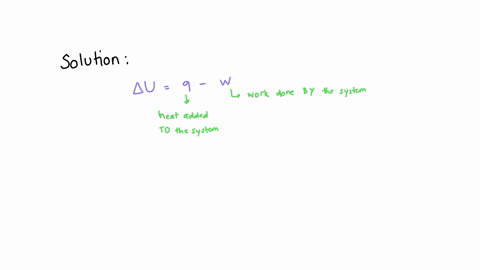 Solution:
ΔU = q - w
↳ work done BY the system
↓
heat added
TO the system